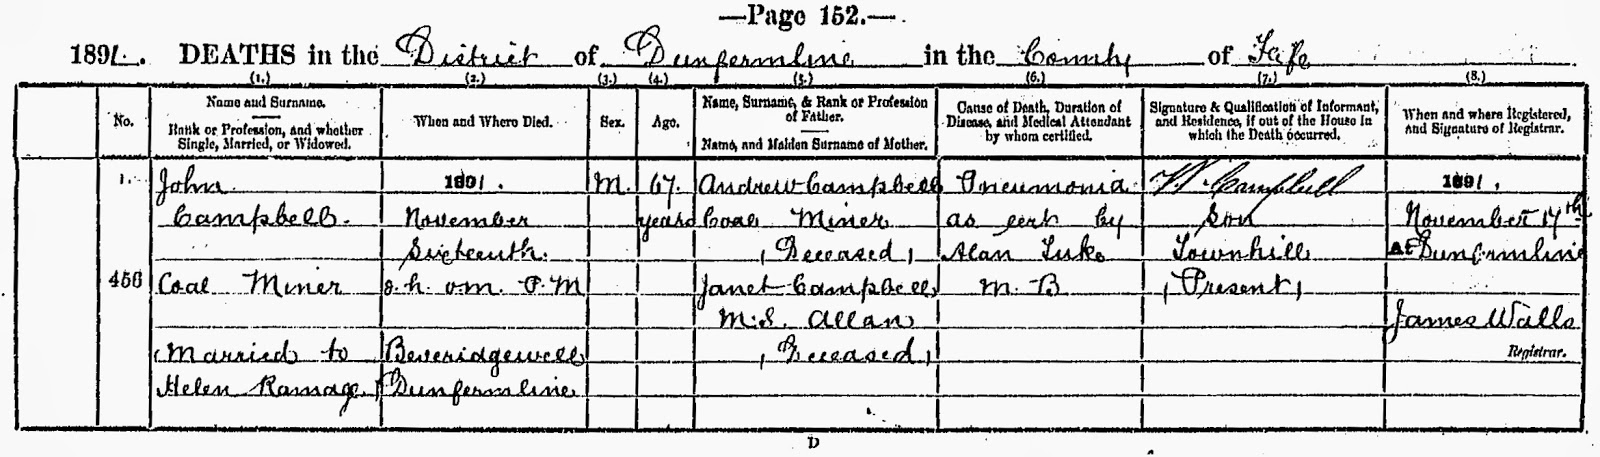 —Page 152.—
1891. DEATHS in the District of Dunfermline in the County of Fife
(1.) (2.) (3.) (4.) (5.) (6.) (7.) (8.)
No.
Name and Surname.
Rank or Profession, and whether
Single, Married, or Widowed.
When and Where Died.
Sex.
Age.
Name, Surname, & Rank or Profession
of Father.
Name, and Maiden Surname of Mother.
Cause of Death, Duration of
Disease, and Medical Attendant
by whom certified.
Signature & Qualification of Informant,
and Residence, if out of the House in
which the Death occurred.
When and where Registered,
and Signature of Registrar.
456
John
Campbell.
Coal Miner
(Married to
Helen Ramage)
1891.
November
Sixteenth.
8.h. 0m. P.M
Beveridgewell
Dunfermline
M.
67.
years
Andrew Campbell
Coal Miner
(Deceased)
Janet Campbell
M.S. Allan
(Deceased)
Pneumonia
as cert by
Alan Tuke
M. B
W. Campbell
Son
Townhill
(Present)
1891.
November 17th
At Dunfermline
James Walls
Registrar.
D